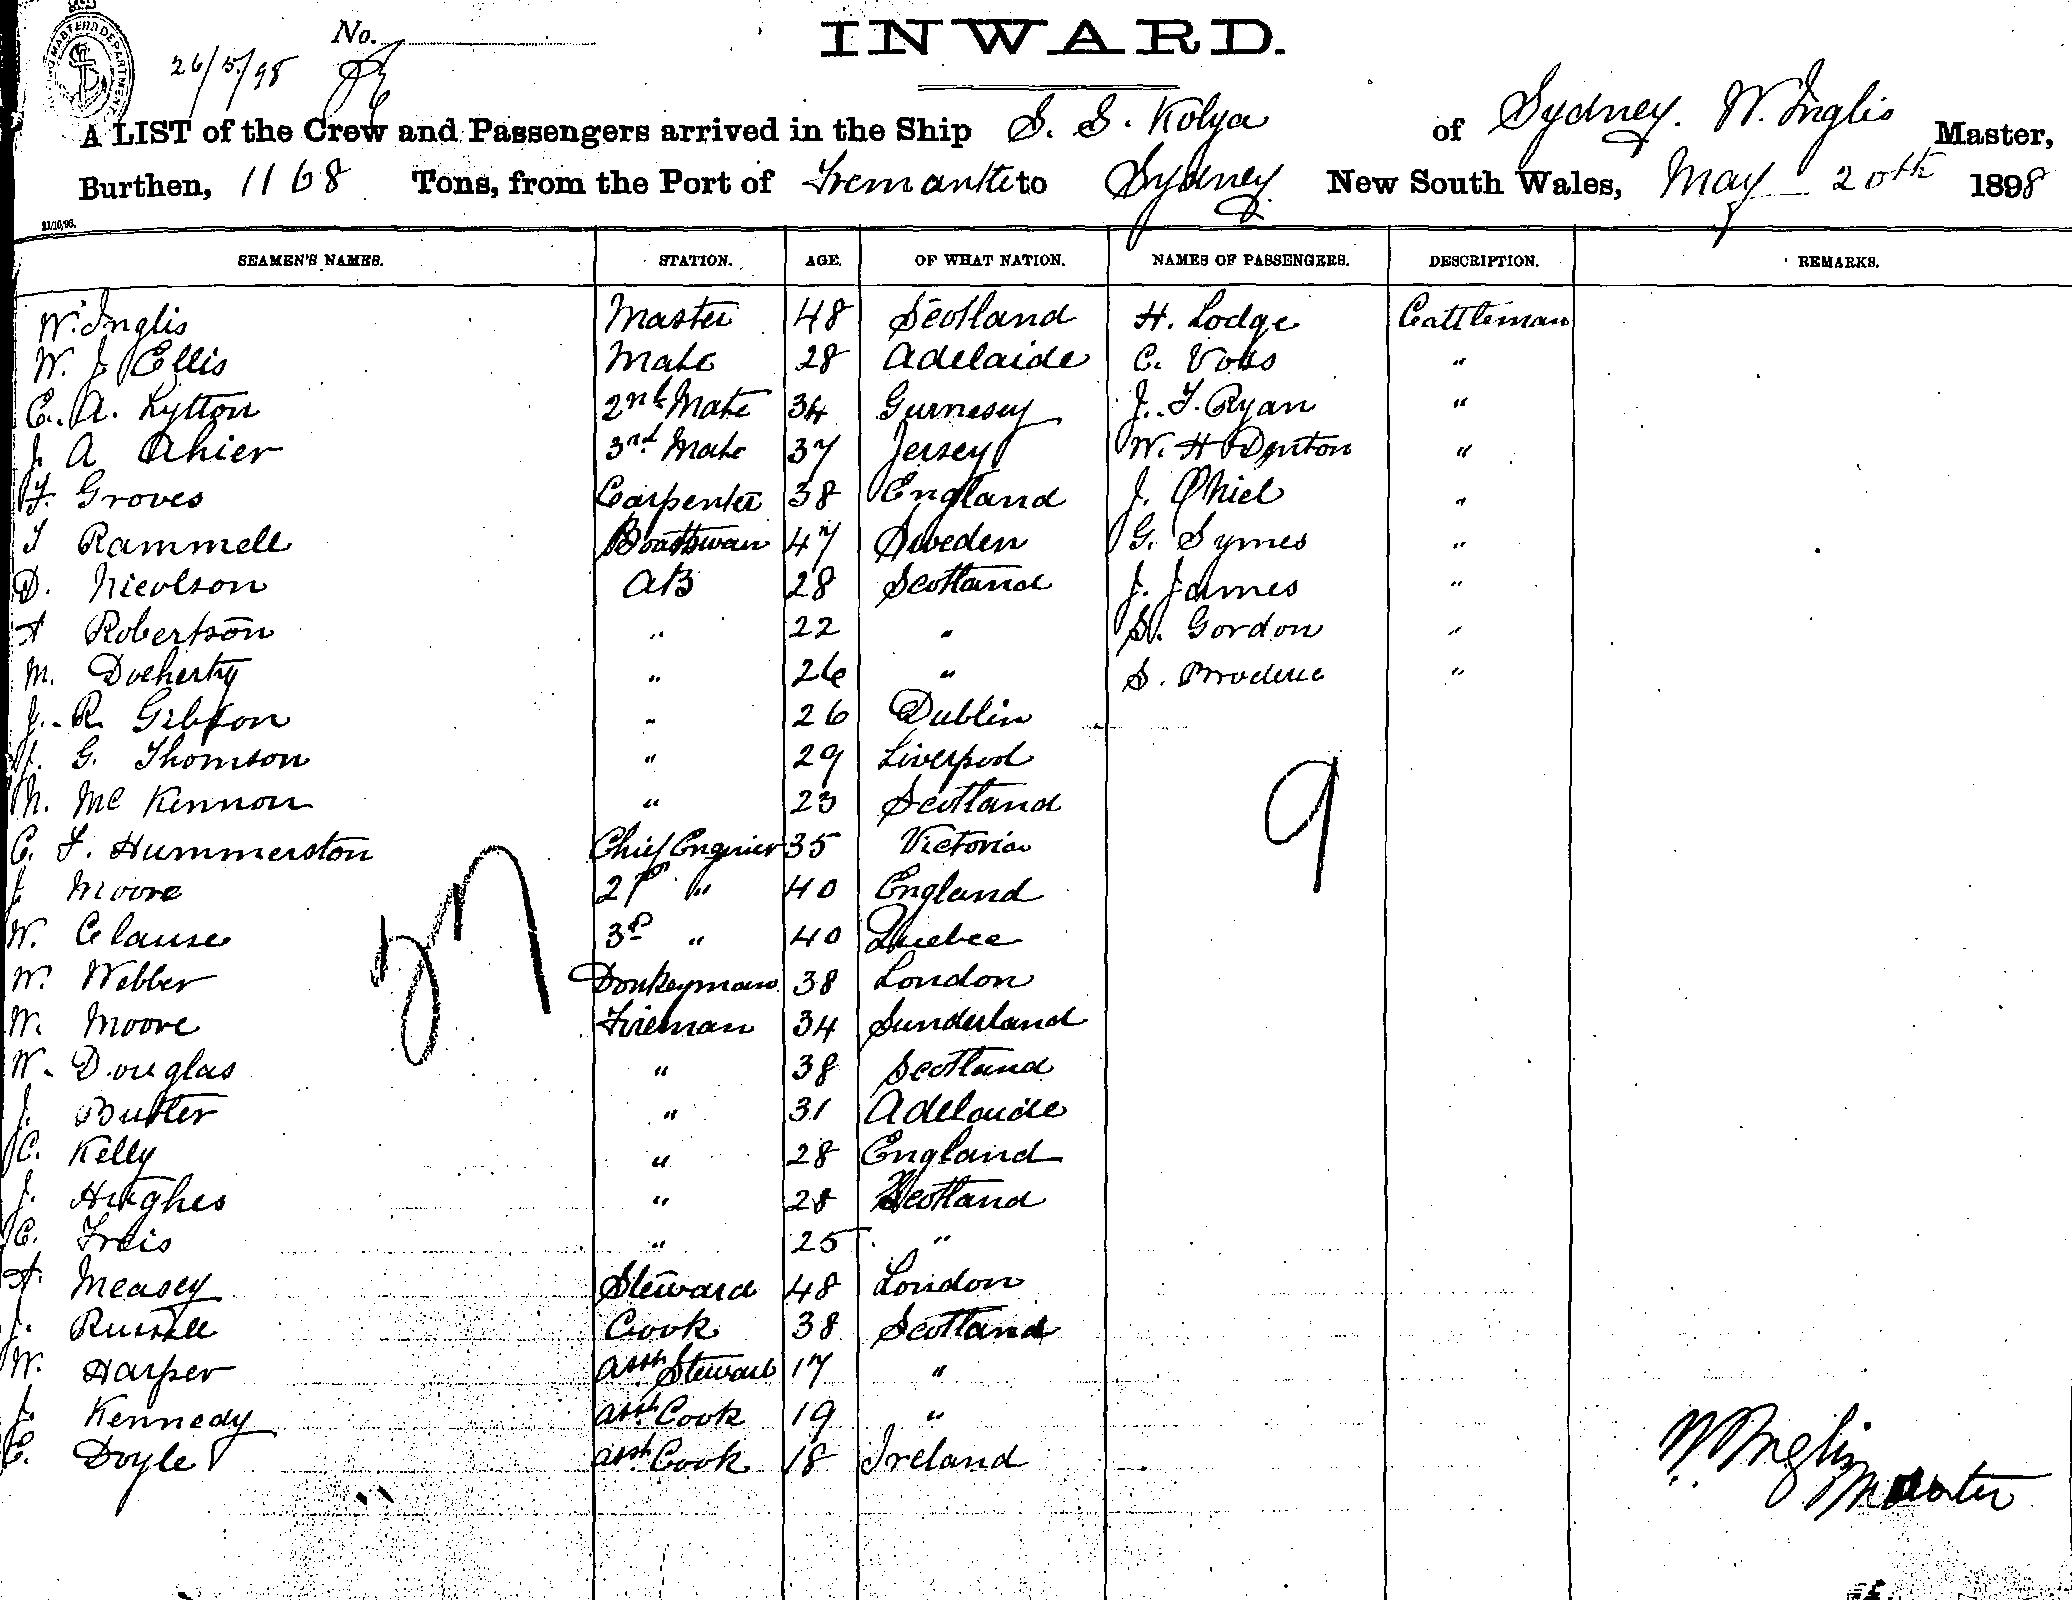 No.
INWARD.
26/5/98
A LIST of the Crew and Passengers arrived in the Ship S. S. Kolya of Sydney. W. Inglis Master,
Burthen, 1168 Tons, from the Port of Fremantle to Sydney New South Wales, May 20th 1898
SEAMEN'S NAMES. STATION. AGE. OF WHAT NATION. NAMES OF PASSENGERS. DESCRIPTION. REMARKS.
W. Inglis Master 48 Scotland H. Lodge Cattleman
W. J. Ellis Mate 28 Adelaide C. Voss "
C. A. Lytton 2nd Mate 34 Gurnesey J. F. Ryan "
J. A Ahier 3rd Mate 37 Jersey W. H Denton "
F. Groves Carpenter 38 England J. Ohiel "
T Rammell Boatswan 47 Sweden G. Symes "
D. Nicolson AB 28 Scotland J. James "
A Robertson " 22 " S. Gordon "
M. Docherty " 26 " S. "
J. R. Gibson " 26 Dublin
G. Thomson " 29 Liverpool
N. Mc Kennon " 23 Scotland
C. F. Hummerston Chief Engineer 35 Victoria
J Moore 2D " 40 England
W. Clause 3D " 40 Quebec
W. Webber Donkeyman 38 London
W. Moore Fireman 34 Sunderland
W. Douglas " 38 Scotland
J. Butler " 31 Adelaide
C. Kelly " 28 England
J. Hughes " 28 Scotland
C. Freis " 25 "
A. Measey Steward 48 London
J. Russell Cook 38 Scotland
W. Harper asst Steward 17 "
J. Kennedy asst Cook 19 "
C. Doyle asst Cook 18 Ireland
27
9
W. Inglis
Master